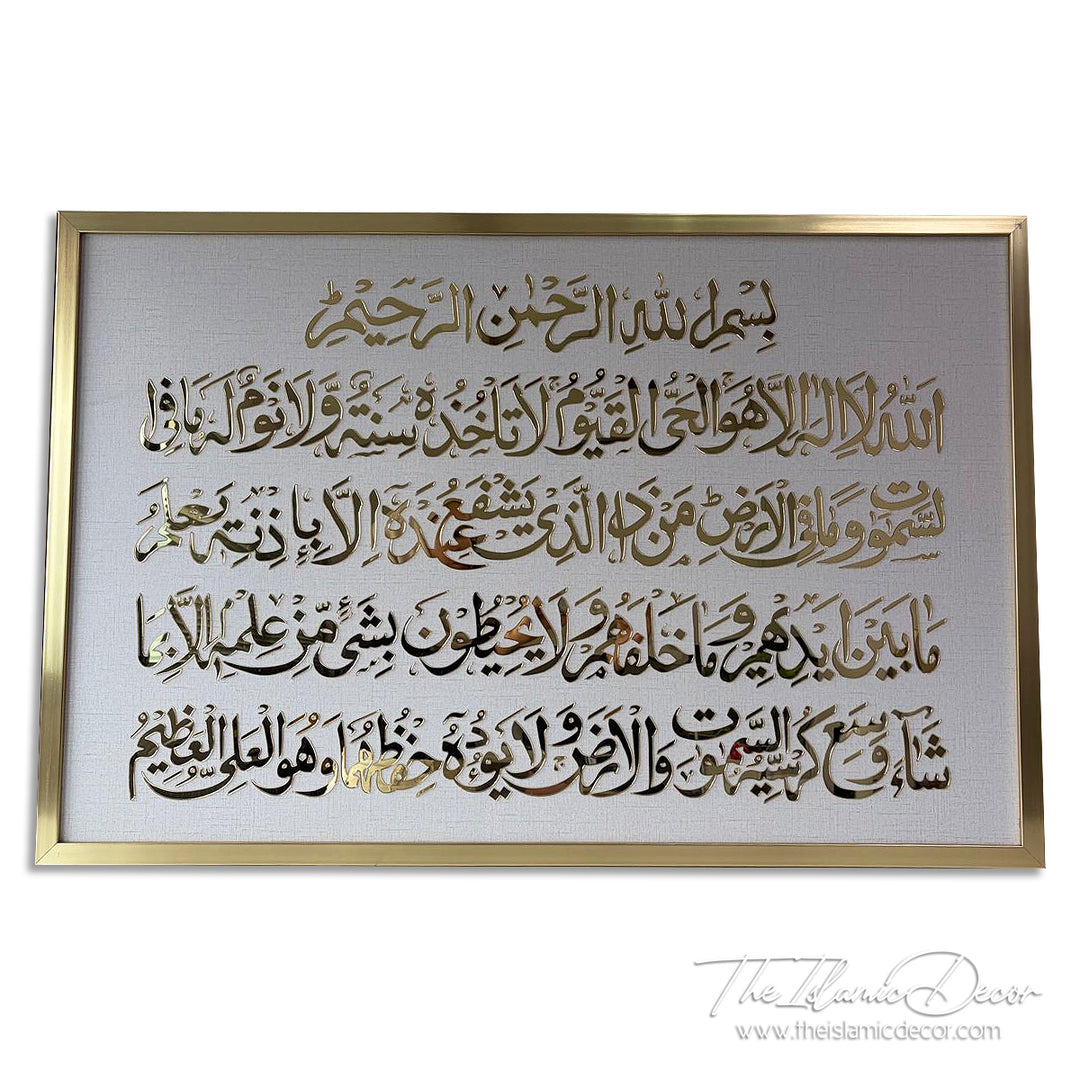 بِسْمِ اللهِ الرَّحْمٰنِ الرَّحِيْمِ
اَللّٰهُ لَا اِلٰهَ اِلَّا هُوَ الْحَىُّ الْقَيُّوْمُ لَا تَاْخُذُهٗ سِنَةٌ وَّلَا نَوْمٌ لَهٗ مَا فِى
السَّمٰوٰتِ وَمَا فِى الْاَرْضِ مَنْ ذَا الَّذِىْ يَشْفَعُ عِنْدَهٗ اِلَّا بِاِذْنِهٖ يَعْلَمُ
مَا بَيْنَ اَيْدِيْهِمْ وَمَا خَلْفَهُمْ وَلَا يُحِيْطُوْنَ بِشَىْءٍ مِّنْ عِلْمِهٖ اِلَّا بِمَا
شَآءَ وَسِعَ كُرْسِيُّهُ السَّمٰوٰتِ وَالْاَرْضَ وَلَا يَـُٔوْدُهٗ حِفْظُهُمَا وَهُوَ الْعَلِىُّ الْعَظِيْمُ
The Islamic Decor
www.theislamicdecor.com